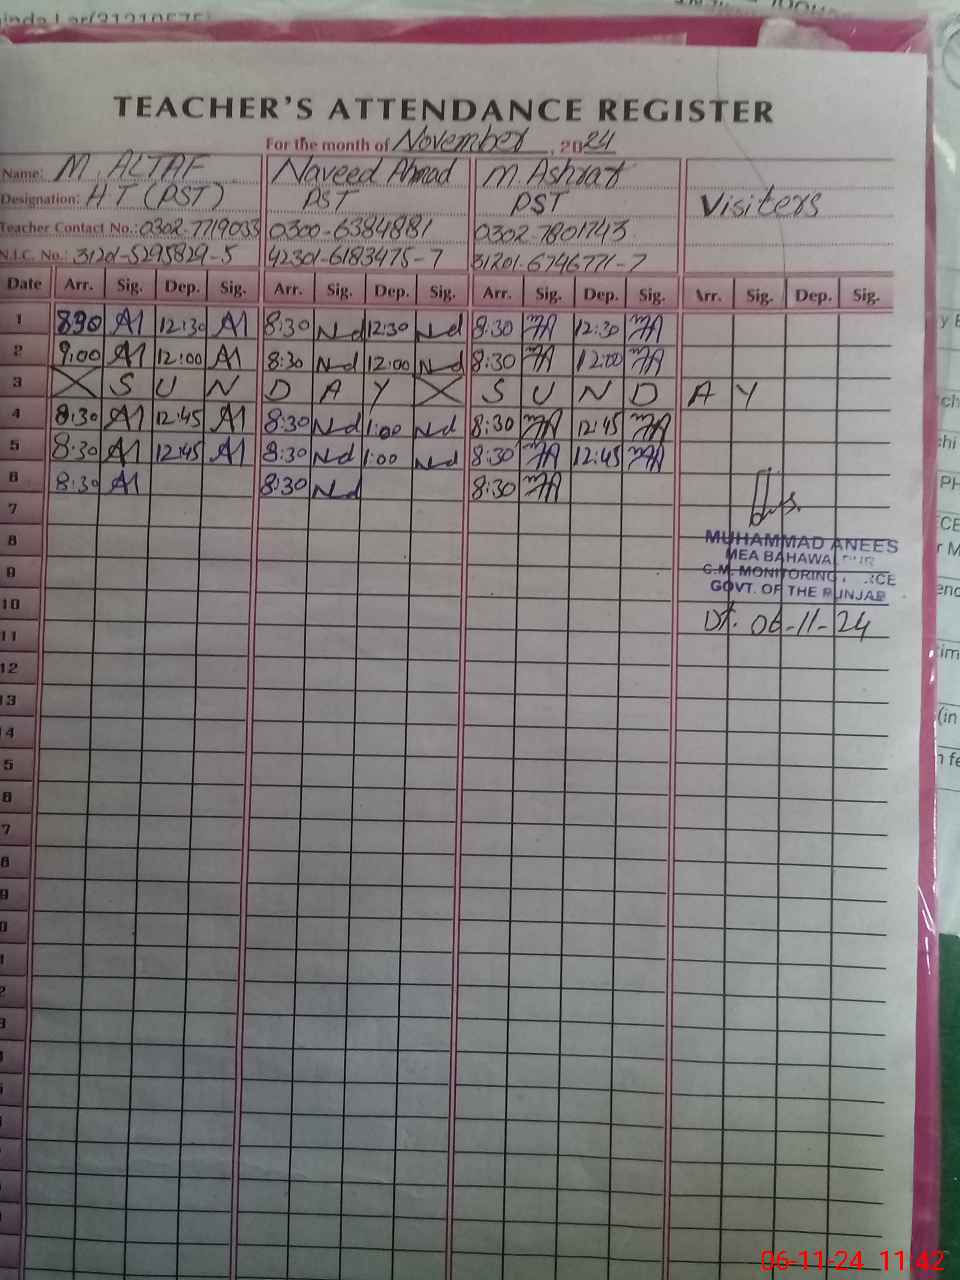 TEACHER'S ATTENDANCE REGISTER
For the month of November, 2024
Name: M. ALTAF Naveed Ahmad M. Ashraf
Designation: HT (PST) PST PST Visiters
Teacher Contact No.: 0302-7719033 0300-6384881 0302-7801743
N.I.C. No.: 31201-5295829-5 42301-6183475-7 31201-6746771-7
Date Arr. Sig. Dep. Sig. Arr. Sig. Dep. Sig. Arr. Sig. Dep. Sig. Arr. Sig. Dep. Sig.
1 8:30 A1 12:30 A1 8:30 Nd 12:30 Nd 8:30 MA 12:30 MA
2 9:00 A1 12:00 A1 8:30 Nd 12:00 Nd 8:30 MA 12:00 MA
3 X S U N D A Y X S U N D A Y
4 8:30 A1 12:45 A1 8:30 Nd 1:00 Nd 8:30 MA 12:45 MA
5 8:30 A1 12:45 A1 8:30 Nd 1:00 Nd 8:30 MA 12:45 MA
6 8:30 A1 8:30 Nd 8:30 MA
7
8 MUHAMMAD ANEES
MEA BAHAWALPUR
9 C.M. MONITORING
GOVT. OF THE PUNJAB
10 Dt. 06-11-24
11
12
13
14
5
6
7
8
9
0
1
2
3
06-11-24 11:42